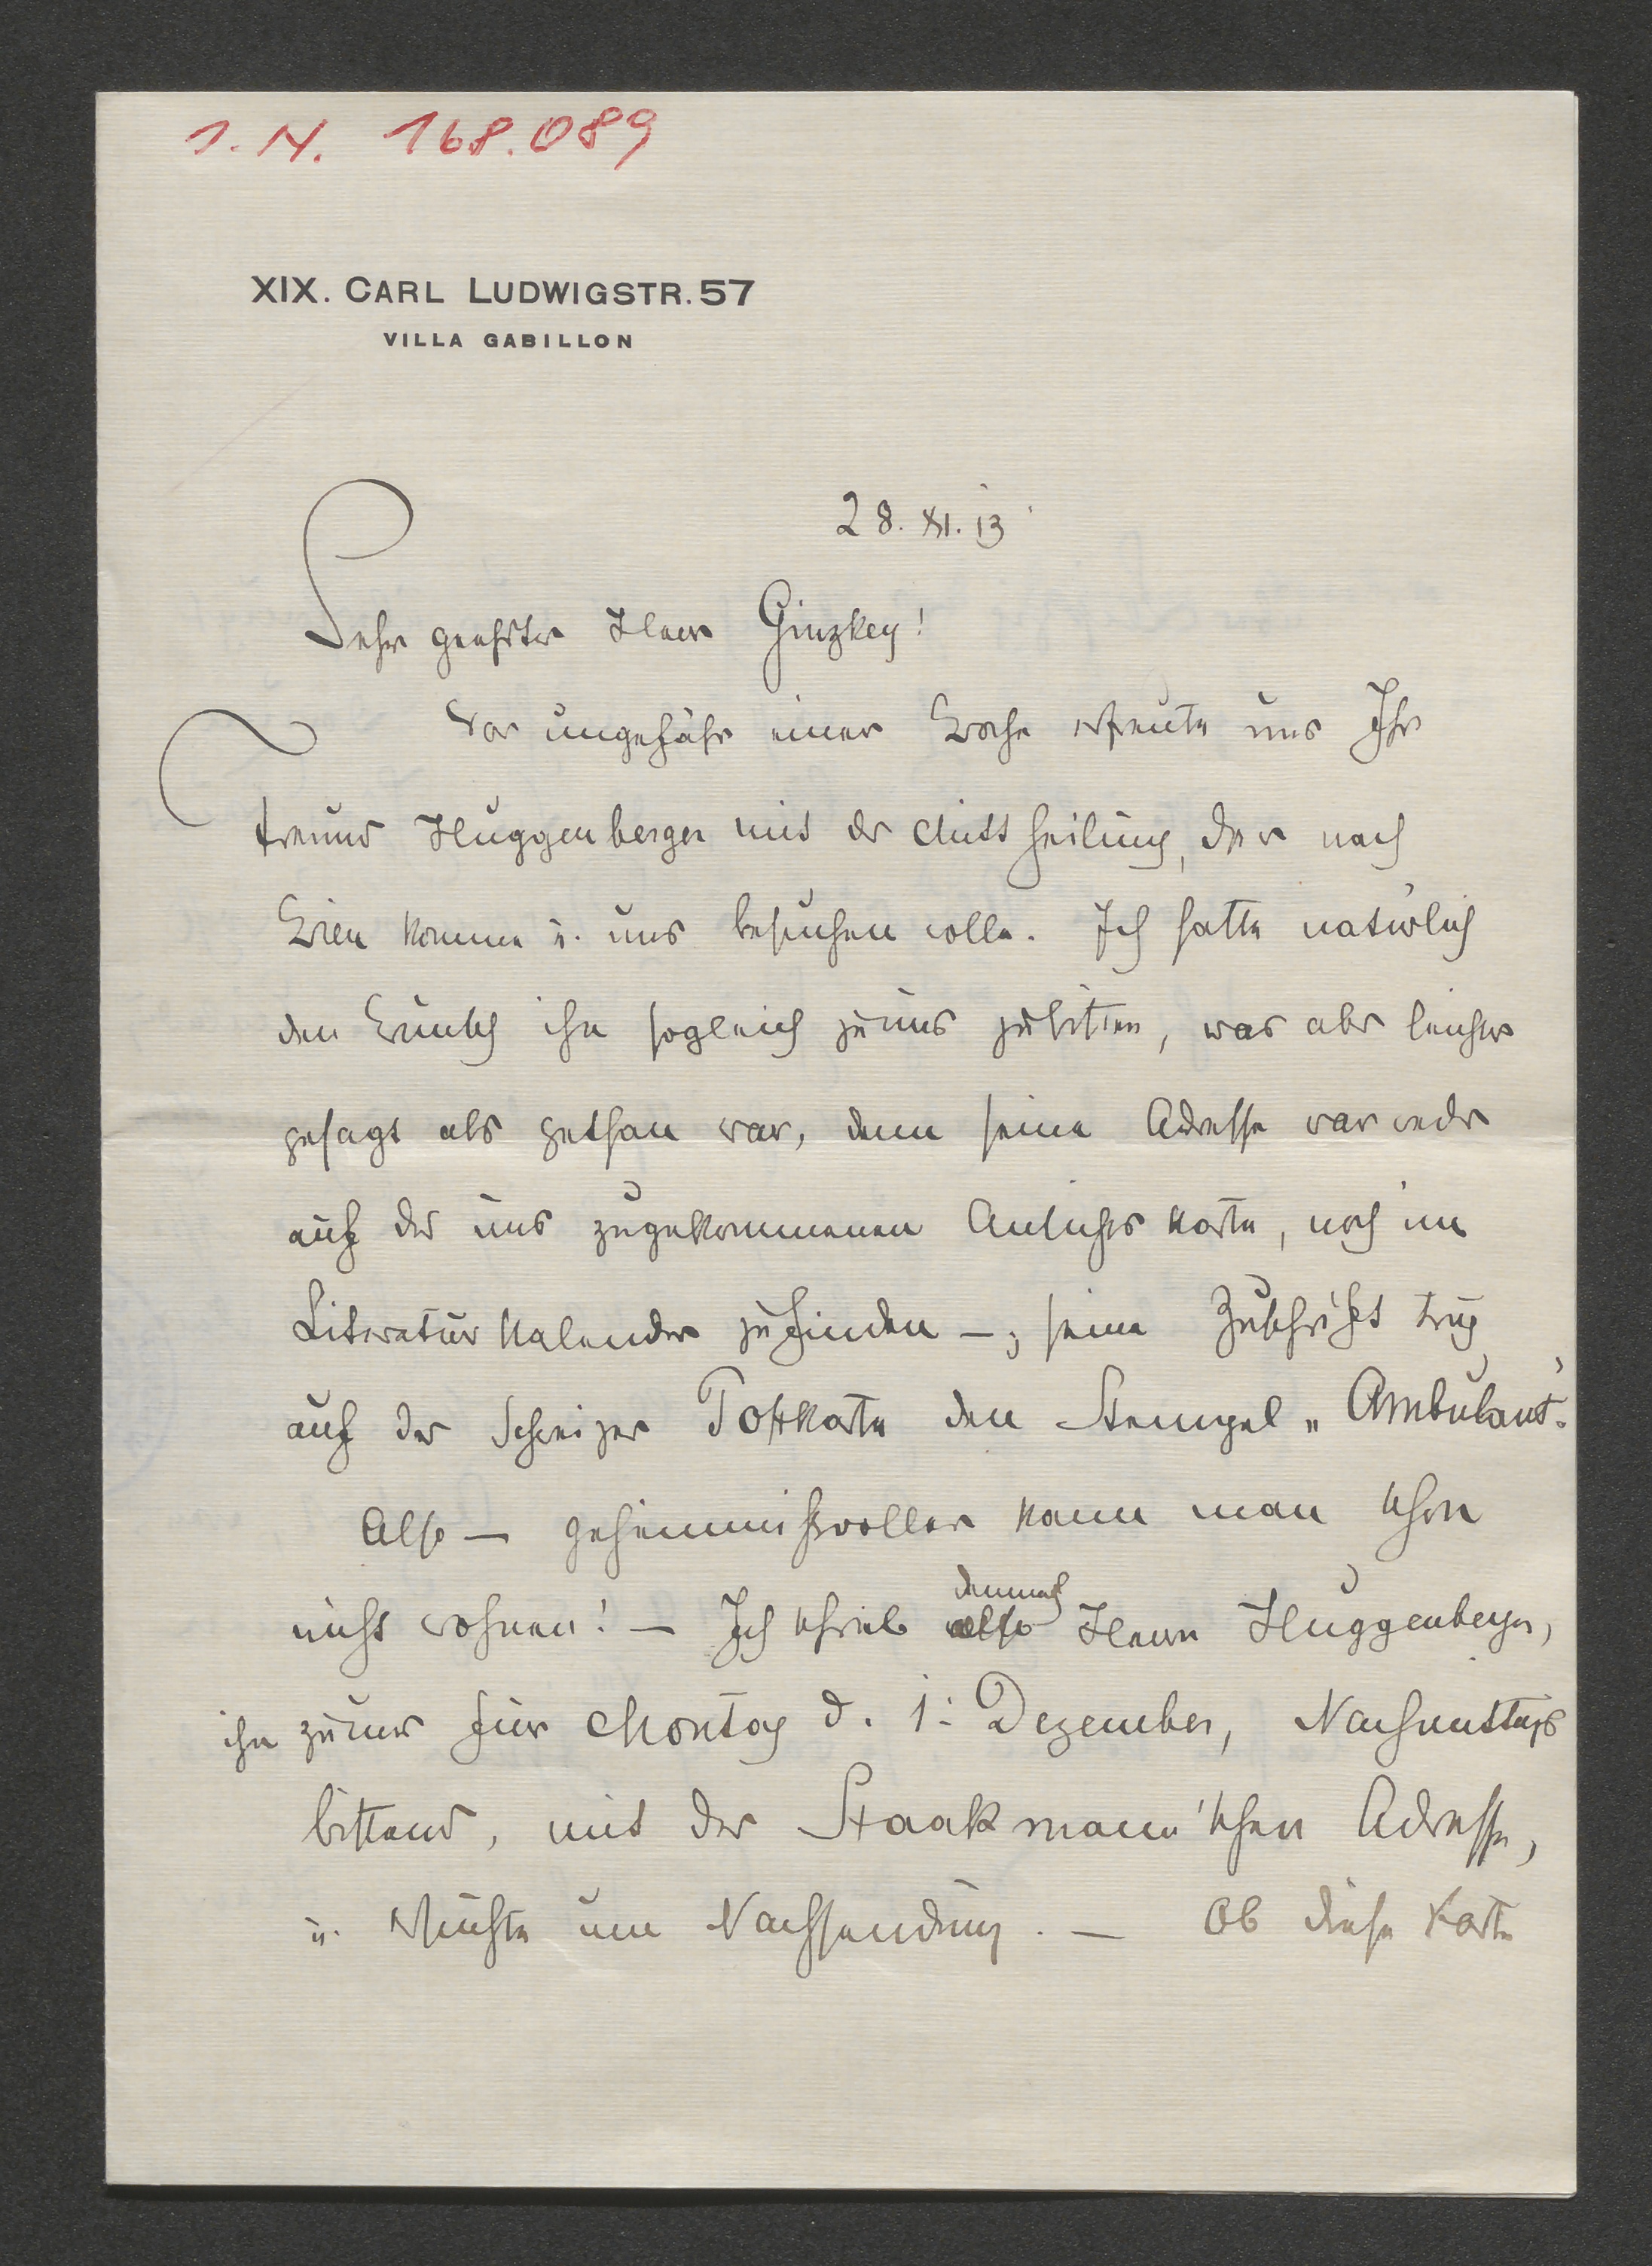 I.N. 168.089
XIX. CARL LUDWIGSTR. 57
VILLA GABILLON
28. XI. 13
Sehr geehrter Herr Ginzkey!
Vor ungefähr einer Woche erfreute uns Ihr
Freund Huggenberger mit der Mittheilung, das er nach
Wien komme u. uns besuchen wolle. Ich hatte natürlich
den Wunsch ihn sogleich zu uns zu bitten, was aber leichter
gesagt als gethan war, denn seine Adresse war weder
auf der uns zugekommenen Ansichtskarte, noch im
Literaturkalender zu finden –; seine Zuschrift trug
auf der Schweizer Postkarte den Stempel „Ambulant".
Also – geheimnißvoller kann man schon
nicht wohnen! – Ich schrieb also demnach Herrn Huggenberger,
ihn zu uns für Montag d. 1. Dezember, Nachmittags
bittend, mit der Staakmann'schen Adresse,
u. ersuchte um Nachsendung. – Ob diese Karte